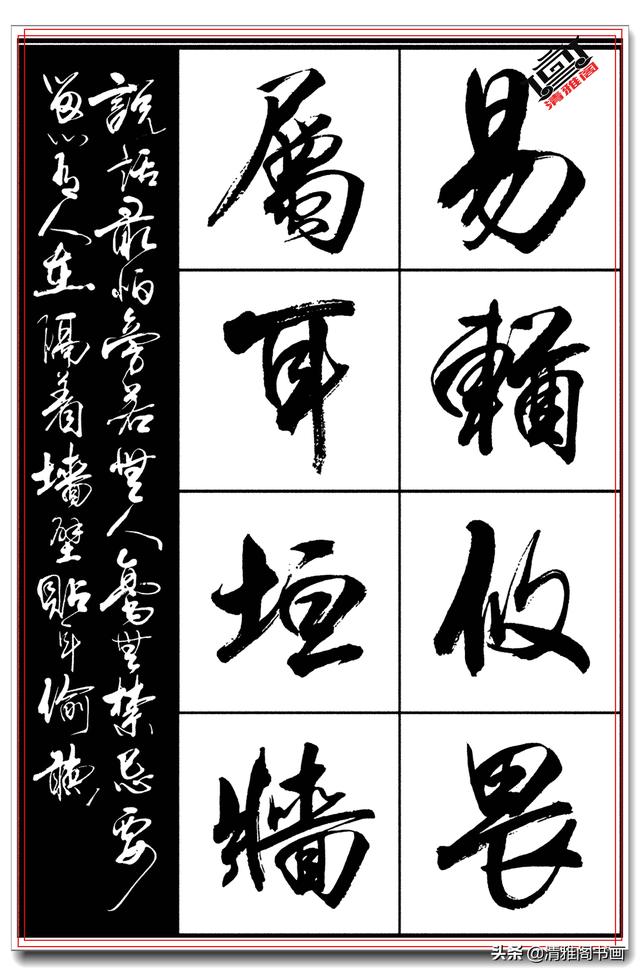 易輶攸畏
屬耳垣牆
說話最怕旁若無人毫無禁忌要
留心有人在隔着墻壁貼耳偷聽
清雅阁
头条 @清雅阁书画